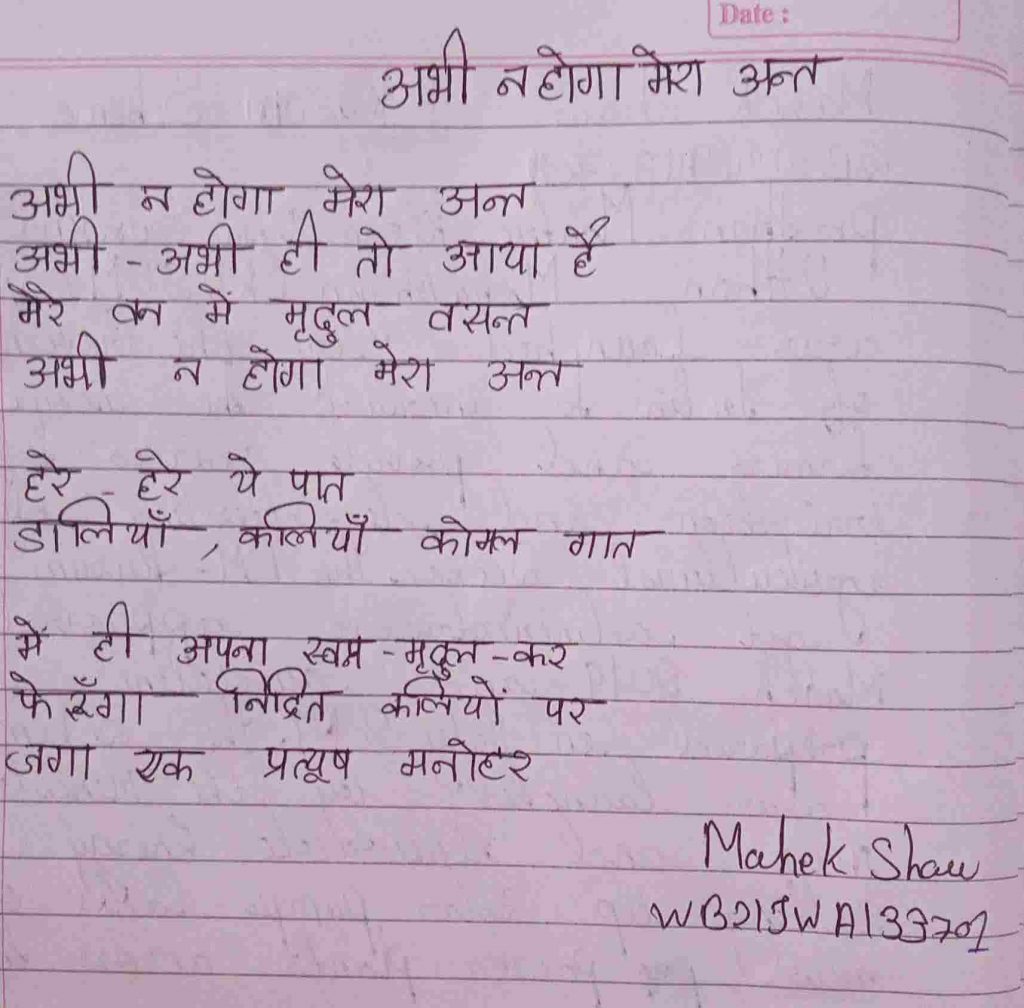 Date :
अभी न होगा मेरा अन्त
अभी न होगा मेरा अन्त
अभी - अभी ही तो आया है
मेरे वन में मृदुल वसन्त
अभी न होगा मेरा अन्त
हरे - हरे ये पात
डालियाँ, कलियाँ कोमल गात
में ही अपना स्वप्न - मृदुल - कर
फेरूँगा निद्रित कलियों पर
जगा एक प्रत्यूष मनोहर
Mahek Shaw
WB21SWA133701